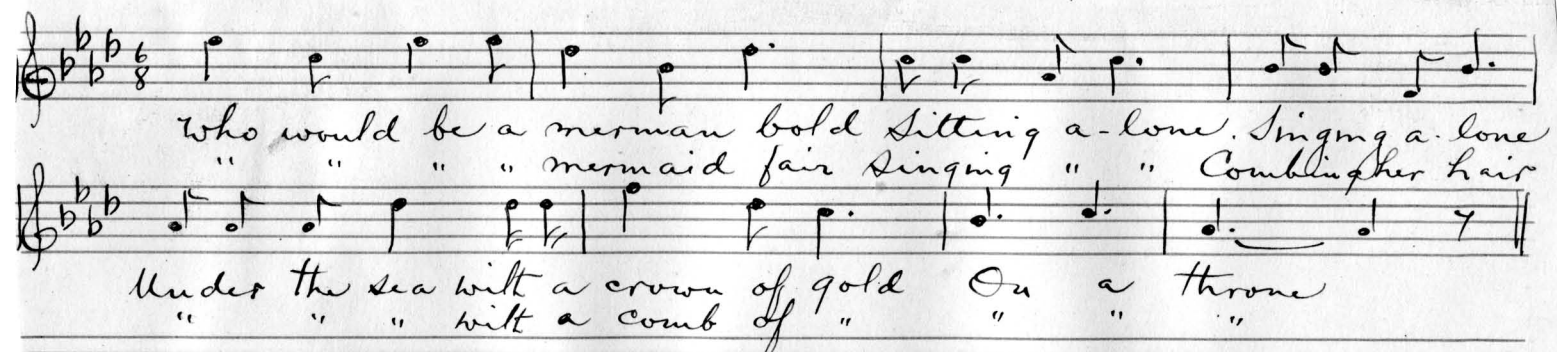 6
8
Who would be a merman bold Sitting a-lone. Singing a-lone
" " " " mermaid fair Singing " " Combing her hair
Under the sea with a crown of gold On a throne
" " " with a comb of " " " "